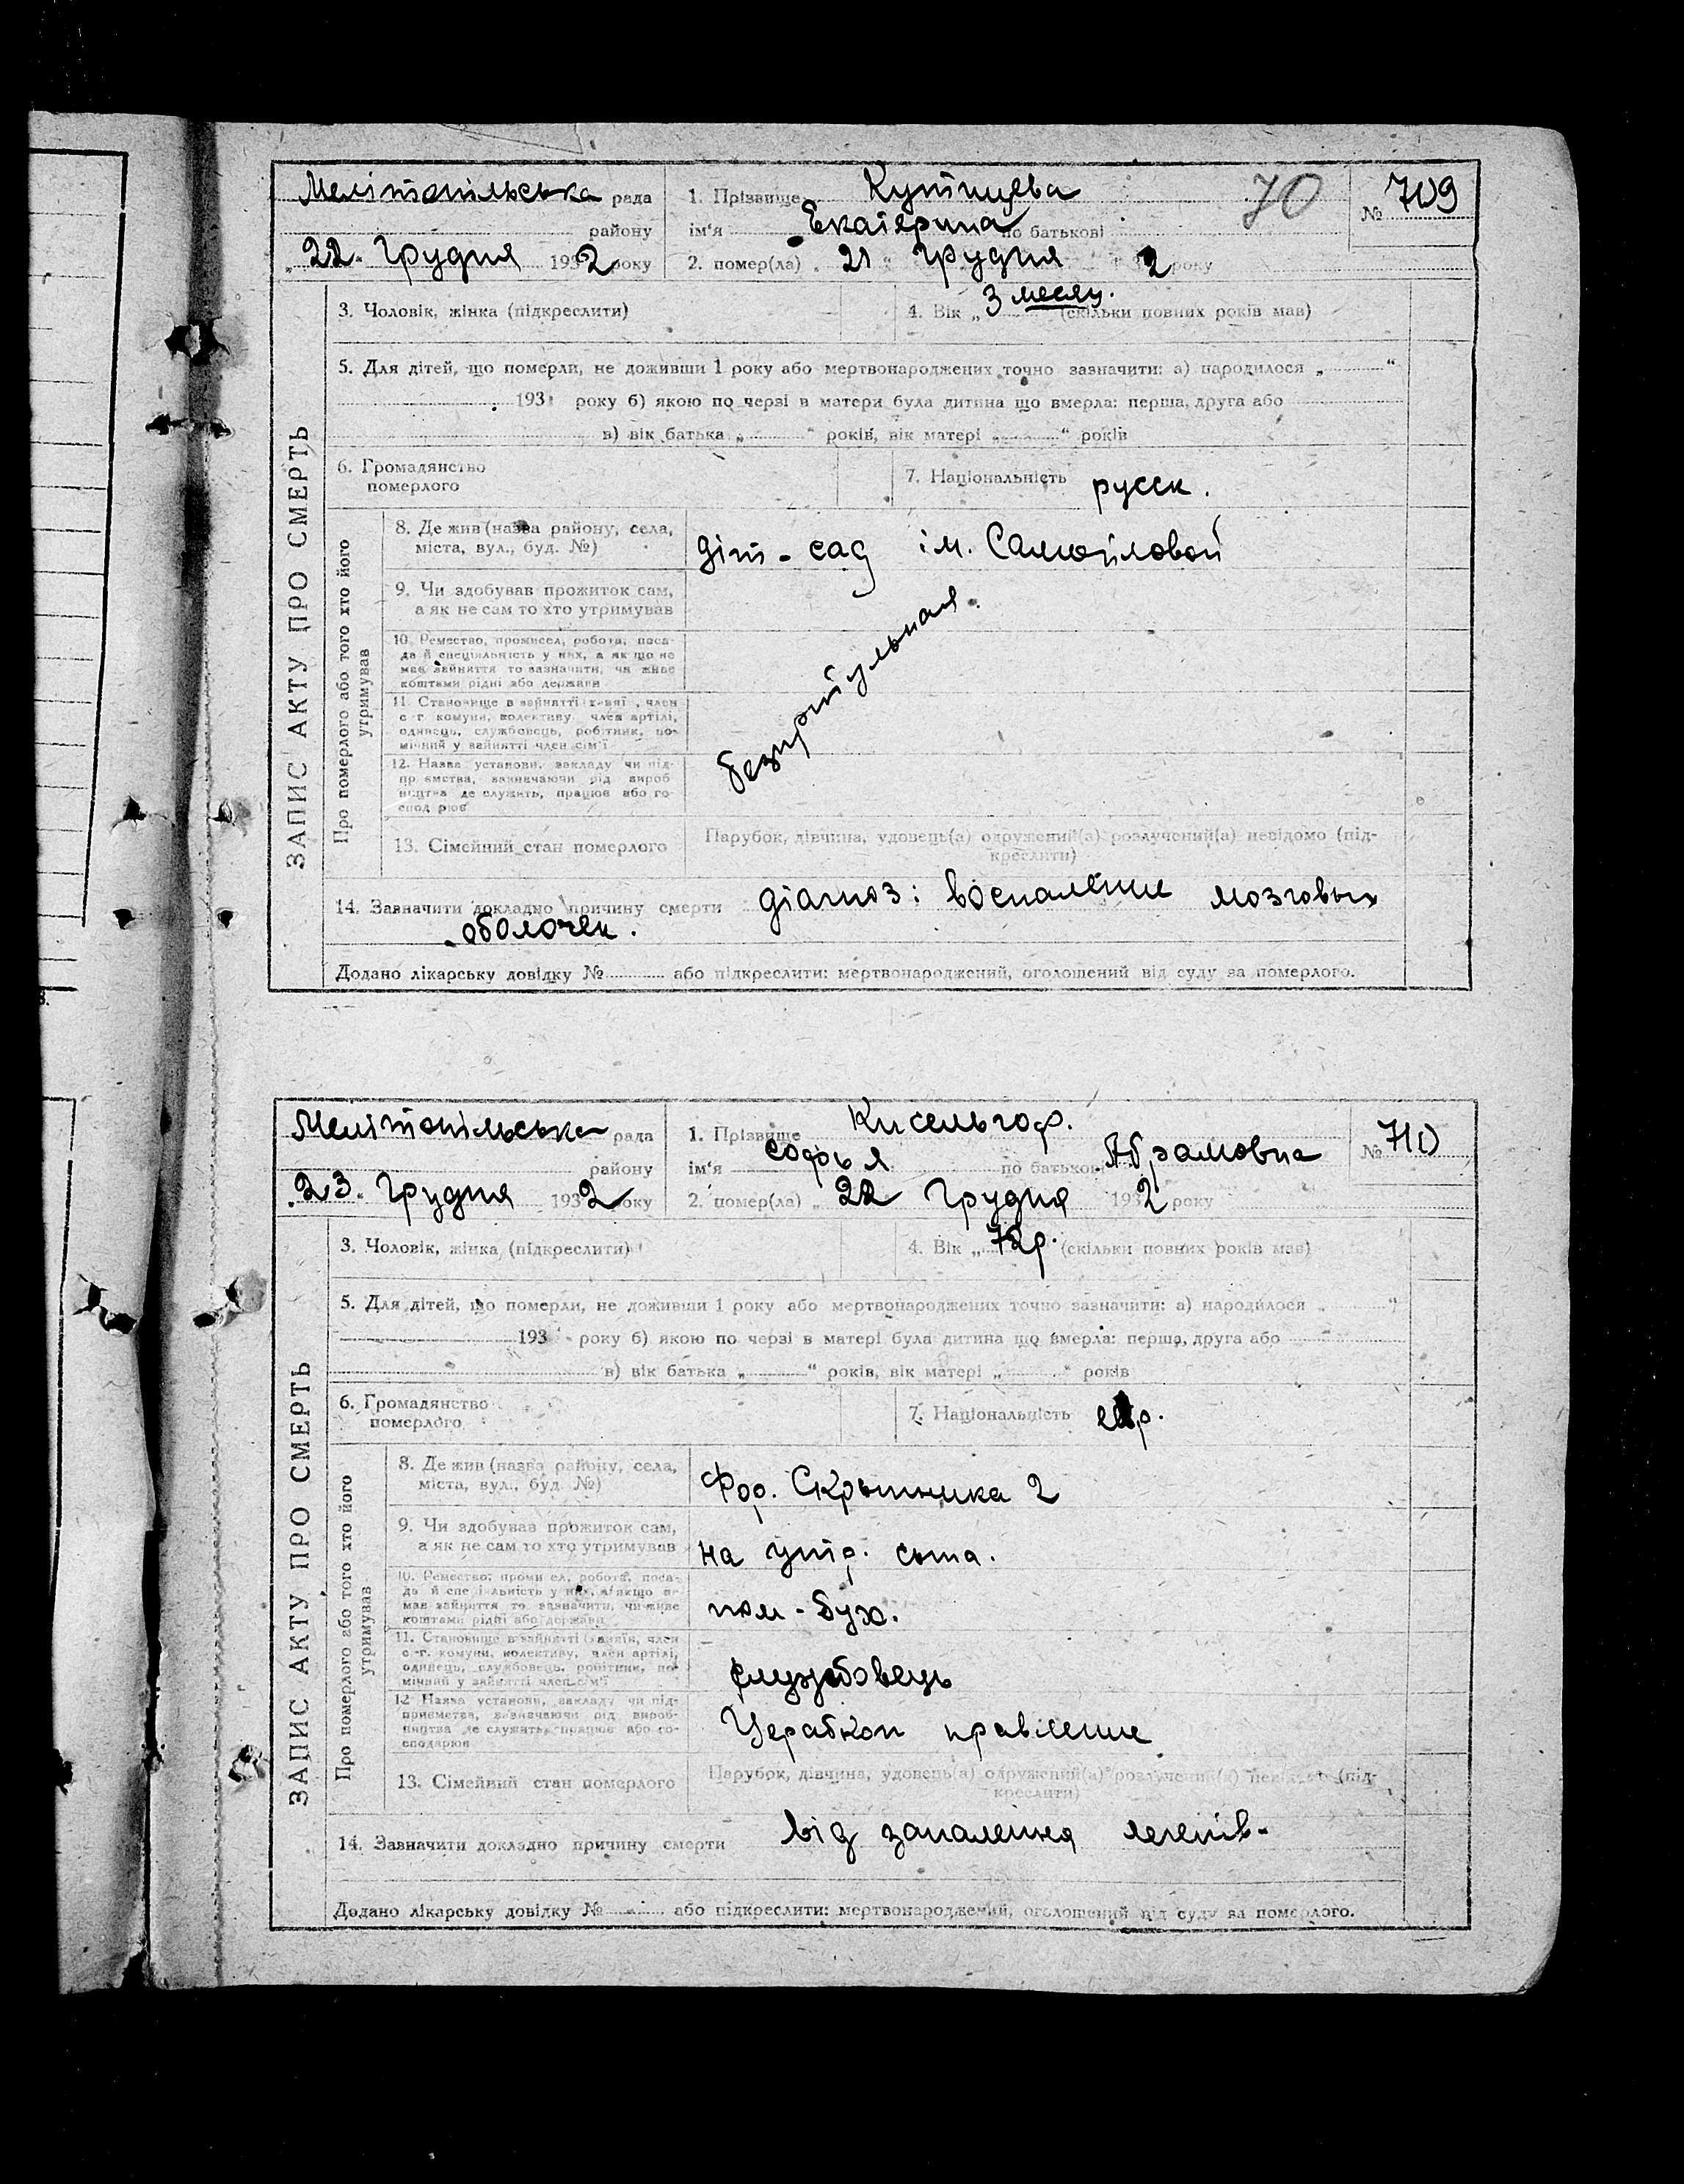 Мелітопільська рада
району
„22“ Грудня 1932 року
1. Прізвище Кутпцева
ім'я Екатерина по батькові
70
№ 709
2. помер(ла) „21“ Грудня 2 року
ЗАПИС АКТУ ПРО СМЕРТЬ
3. Чоловік, жінка (підкреслити)
4. Вік „3 месяц. (скільки повних років мав)
5. Для дітей, що померли, не доживши 1 року або мертвонароджених точно зазначити: а) народилося „ “
193 року б) якою по черзі в матери була дитина що вмерла: перша, друга або
в) вік батька „ “ років, вік матері „ “ років
6. Громадянство
померлого
7. Національність русск.
Про померлого або того хто його
утримував
8. Де жив (назва району, села,
міста, вул., буд. №)
діт-сад ім. Самойловой
9. Чи здобував прожиток сам,
а як не сам то хто утримував
безпритульная.
10. Ремество, промисел, робота, поса-
да й спеціяльність у них, а як що не
має зайняття то зазначити, чи живе
коштами рідні або держави
11. Становище в зайнятті (хазяї, член
с-г комуни, колективу член артілі,
одинець, службовець, робітник, по-
мічний у зайнятті член сім'ї
12. Назва установи, закладу чи під-
приємства, зазначаючи рід вироб
ництва де служить, працює або го-
сподарює
13. Сімейний стан померлого
Парубок, дівчина, удовець(а) одружений(а) розлучений(а) невідомо (під-
креслити)
14. Зазначити докладно причину смерти діагноз: воспаление мозговых
оболочек.
Додано лікарську довідку № або підкреслити: мертвонароджений, оголошений від суду за померлого.
Мелітопільська рада
району
„23“ Грудня 1932 року
1. Прізвище Кисельгоф.
ім'я Софья по батькові Абрамовна
№ 710
2. помер(ла) „22 Грудня 1932 року
ЗАПИС АКТУ ПРО СМЕРТЬ
3. Чоловік, жінка (підкреслити)
4. Вік „72р. (скільки повних років мав)
5. Для дітей, що померли, не доживши 1 року або мертвонароджених точно зазначити: а) народилося „ “
193 року б) якою по черзі в матері була дитина що вмерла: перша, друга або
в) вік батька „ “ років, вік матері „ “ років
6. Громадянство
померлого
7. Національність евр.
Про померлого або того хто його
утримував
8. Де жив (назва району, села,
міста, вул., буд. №)
Скрыпника 2
9. Чи здобував прожиток сам,
а як не сам то хто утримував
на утр. сына.
10. Ремество, промисел, робота, поса-
да й спеціяльність у них, а якщо не
має зайняття то зазначити, чи живе
коштами рідні або держави
пом-бух.
11. Становище в зайнятті (хазяїн, член
с-г. комуни, колективу, член артілі,
одинець, службовець, робітник, по-
мічний у зайнятті член сім'ї
службовець
12 Назва установи, закладу чи під-
приємства, зазначаючи рід вироб-
ництва де служить, працює або го-
сподарює
Церабкоп правление
13. Сімейний стан померлого
Парубок, дівчина, удовець(а) одружений(а) розлучений(а) невідомо (під-
креслити)
14. Зазначити докладно причину смерти від запалення легенів-
Додано лікарську довідку № або підкреслити: мертвонароджений, оголошений від суду за померлого.